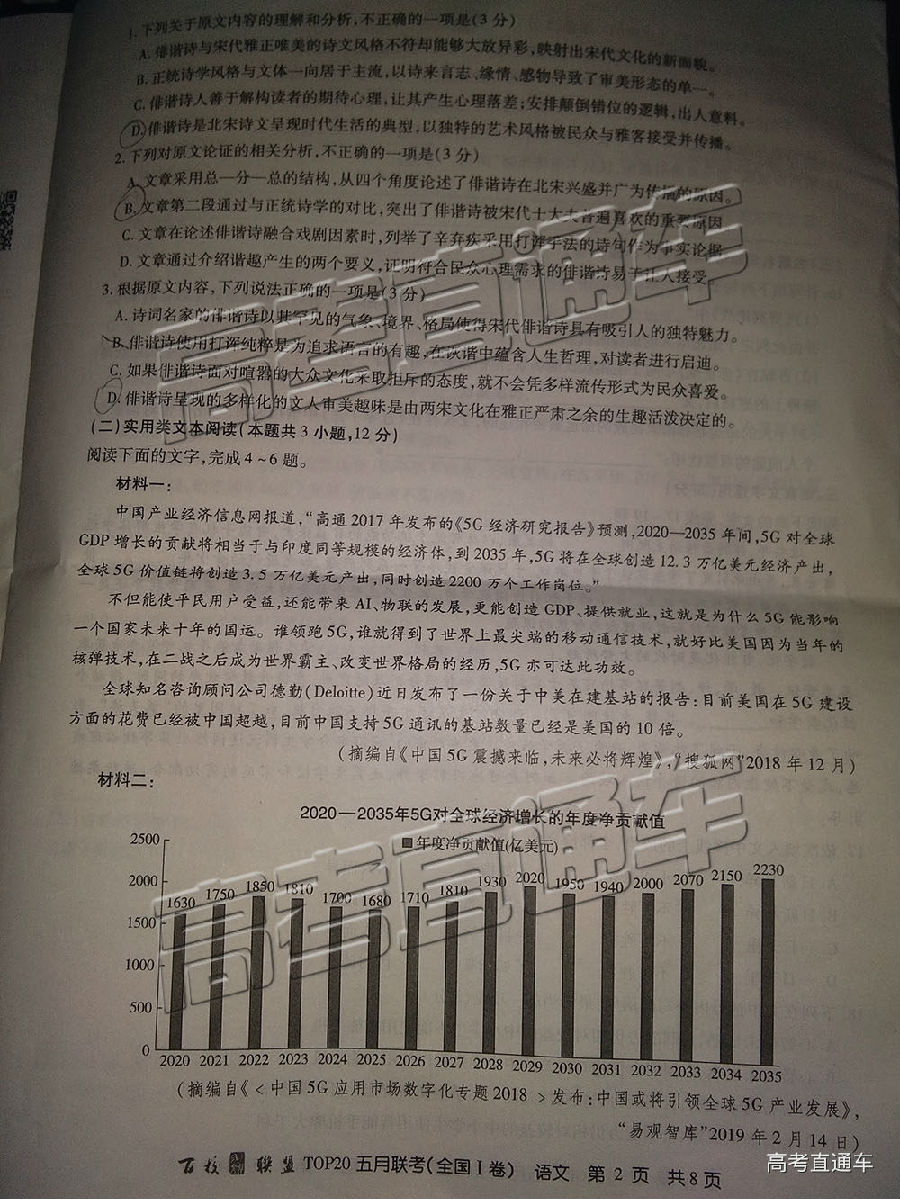 1.下列关于原文内容的理解和分析,不正确的一项是(3分)
A.俳谐诗与宋代雅正唯美的诗文风格不符却能够大放异彩,映射出宋代文化的新面貌。
B.正统诗学风格与文体一向居于主流,以诗来言志、缘情、感物导致了审美形态的单一。
C.俳谐诗人善于解构读者的期待心理,让其产生心理落差;安排颠倒错位的逻辑,出人意料。
D.俳谐诗是北宋诗文呈现时代生活的典型,以独特的艺术风格被民众与雅客接受并传播。
2.下列对原文论证的相关分析,不正确的一项是(3分)
A.文章采用总—分—总的结构,从四个角度论述了俳谐诗在北宋兴盛并广为传播的原因。
B.文章第二段通过与正统诗学的对比,突出了俳谐诗被宋代士大夫普遍喜欢的重要原因
C.文章在论述俳谐诗融合戏剧因素时,列举了辛弃疾采用打诨手法的诗句作为事实论据
D.文章通过介绍谐趣产生的两个要义,证明符合民众心理需求的俳谐诗易于让人接受
3.根据原文内容,下列说法正确的一项是(3分)
A.诗词名家的俳谐诗以其罕见的气象、境界、格局使得宋代俳谐诗具有吸引人的独特魅力。
B.俳谐诗使用打诨纯粹是为追求语言的有趣,在诙谐中蕴含人生哲理,对读者进行启迪。
C.如果俳谐诗面对喧嚣的大众文化采取拒斥的态度,就不会凭多样流传形式为民众喜爱。
D.俳谐诗呈现的多样化的文人审美趣味是由两宋文化在雅正严肃之余的生趣活泼决定的。
(二)实用类文本阅读(本题共3小题,12分)
阅读下面的文字,完成4~6题。
材料一:
中国产业经济信息网报道,“高通2017年发布的《5G经济研究报告》预测,2020—2035年间,5G对全球
GDP增长的贡献将相当于与印度同等规模的经济体,到2035年,5G将在全球创造12.3万亿美元经济产出,
全球5G价值链将创造3.5万亿美元产出,同时创造2200万个工作岗位。”
不但能使平民用户受益,还能带来AI、物联的发展,更能创造GDP、提供就业,这就是为什么5G能影响
一个国家未来十年的国运。谁领跑5G,谁就得到了世界上最尖端的移动通信技术,就好比美国因为当年的
核弹技术,在二战之后成为世界霸主、改变世界格局的经历,5G亦可达此功效。
全球知名咨询顾问公司德勤(Deloitte)近日发布了一份关于中美在建基站的报告:目前美国在5G建设
方面的花费已经被中国超越,目前中国支持5G通讯的基站数量已经是美国的10倍。
(摘编自《中国5G震撼来临,未来必将辉煌》,“搜狐网”2018年12月)
材料二:
2020—2035年5G对全球经济增长的年度净贡献值
年度净贡献值(亿美元)
2500
2000
1500
1000
500
0
1630 1750 1850 1810 1700 1680 1710 1810 1930 2020 1950 1940 2000 2070 2150 2230
2020 2021 2022 2023 2024 2025 2026 2027 2028 2029 2030 2031 2032 2033 2034 2035
(摘编自《<中国5G应用市场数字化专题2018>发布:中国或将引领全球5G产业发展》,
“易观智库”2019年2月14日)
百校联盟 TOP20五月联考(全国Ⅰ卷) 语文 第2页 共8页
高考直通车
高考直通车
高考直通车